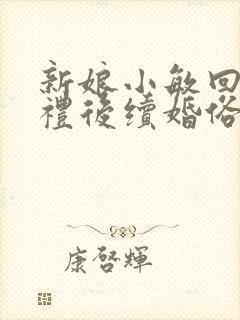 新娘小敏回
禮後續婚俗
康啓輝